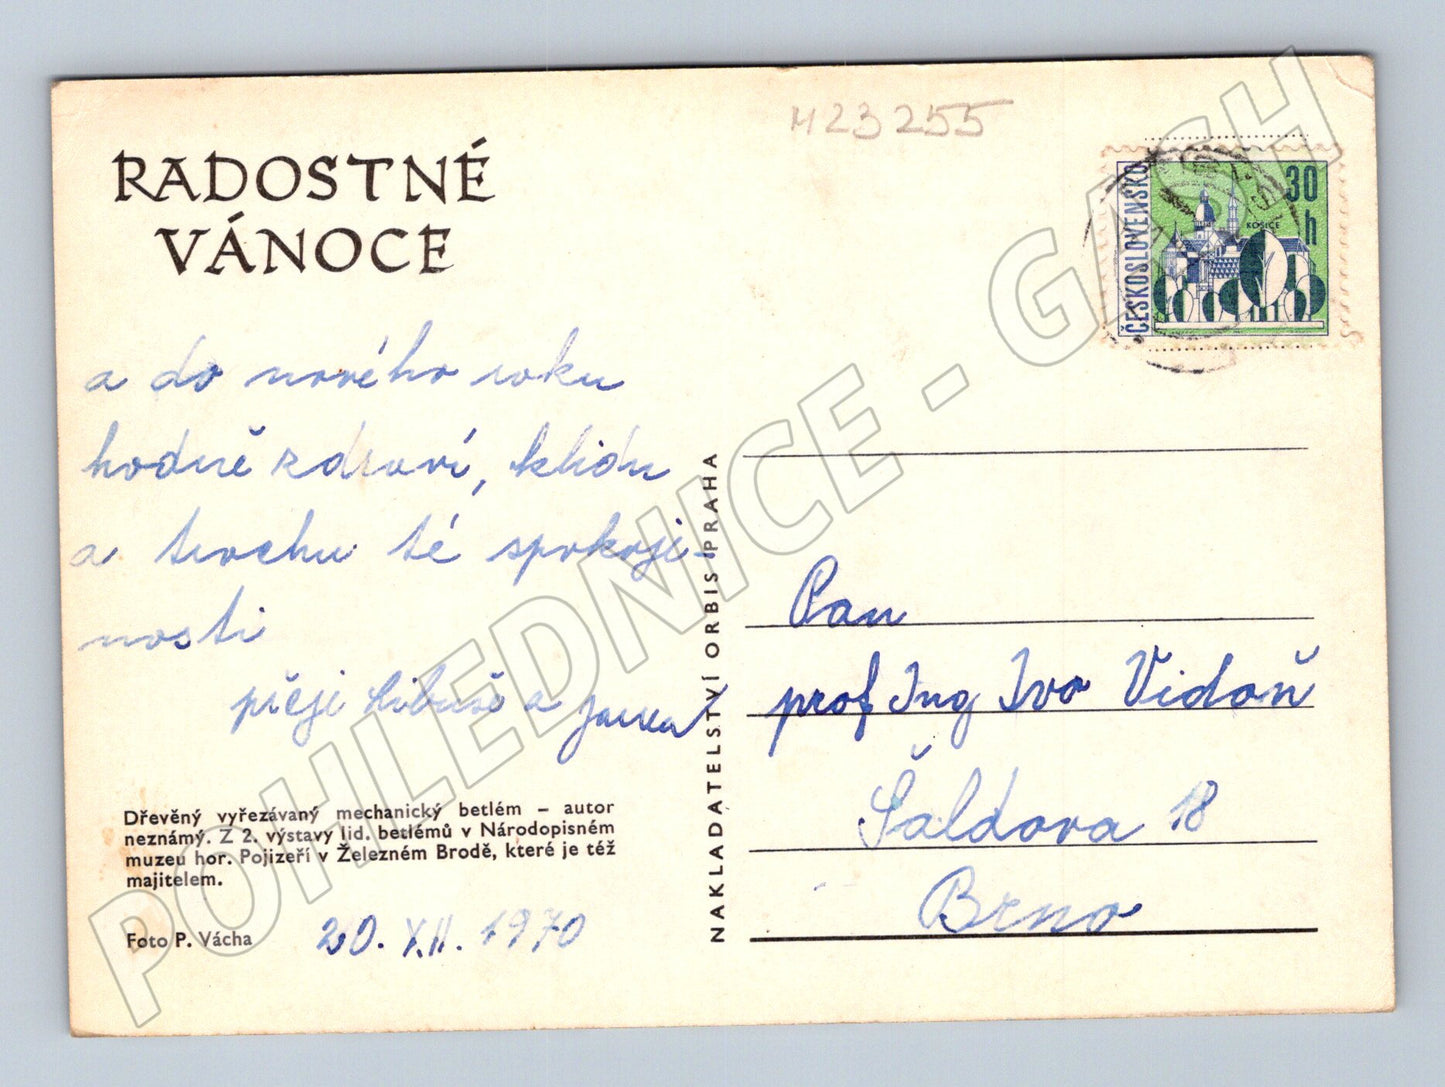 M23255
RADOSTNÉ
VÁNOCE
ČESKOSLOVENSKO
30
h
KOŠICE
a do nového roku
hodně zdraví, klidu
a trochu té spokoji-
nosti
přeji Libuše a
NAKLADATELSTVÍ ORBIS PRAHA
Pan
prof Ing Ivo Vidoň
Šaldova 18
Brno
Dřevěný vyřezávaný mechanický betlém – autor
neznámý. Z 2. výstavy lid. betlémů v Národopisném
muzeu hor. Pojizeří v Železném Brodě, které je též
majitelem.
Foto P. Vácha
20. XII. 1970
POHLEDNICE - GASH